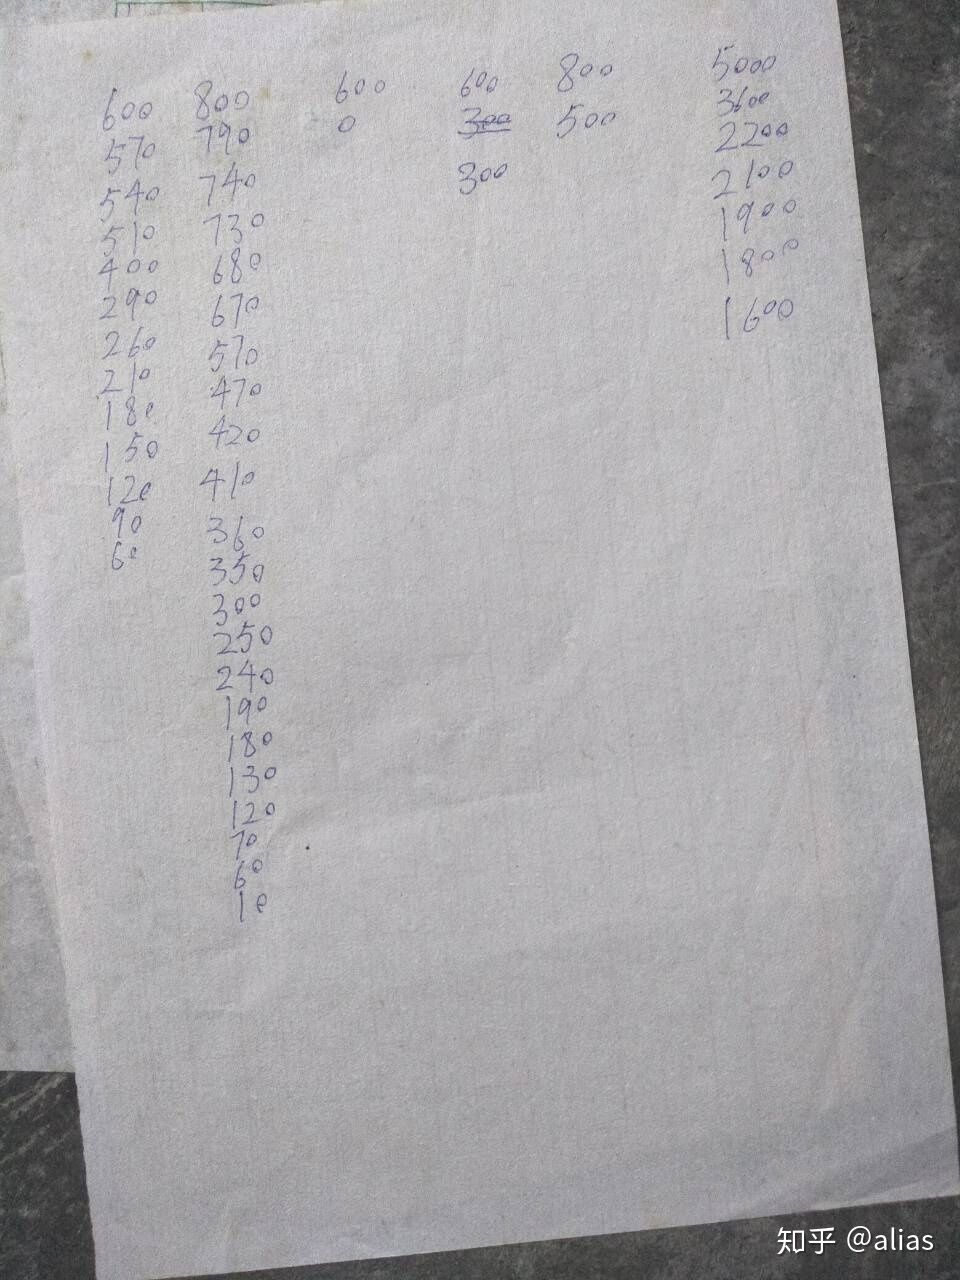 600
570
540
510
400
290
260
210
180
150
120
90
60
800
790
740
730
680
670
570
470
420
410
360
350
300
250
240
190
180
130
120
70
60
10
600
0
600
300
300
800
500
5000
3600
2200
2100
1900
1800
1600
知乎 @alias